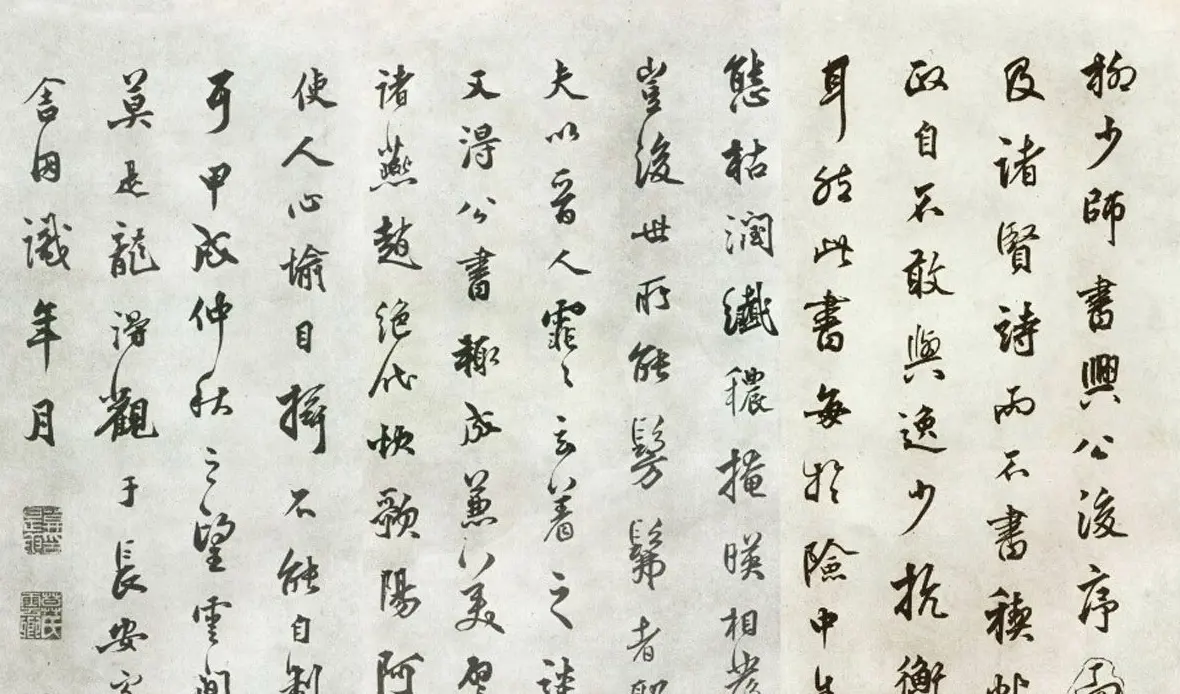 柳少師書興公後序
及諸賢詩而不書禊帖
政自不敢與逸少抗衡
耳然此書每於險中生
態枯潤纖穠掩暎相發
豈後世所能髣髴者
夫以晉人霏霏玄著之談
又得公書輙成兼美譬
諸燕趙絕代快歌陽阿
使人心愉目搖不能自制
耳甲戌仲秋之望雲間
莫是龍得觀于長安客
舍因識年月